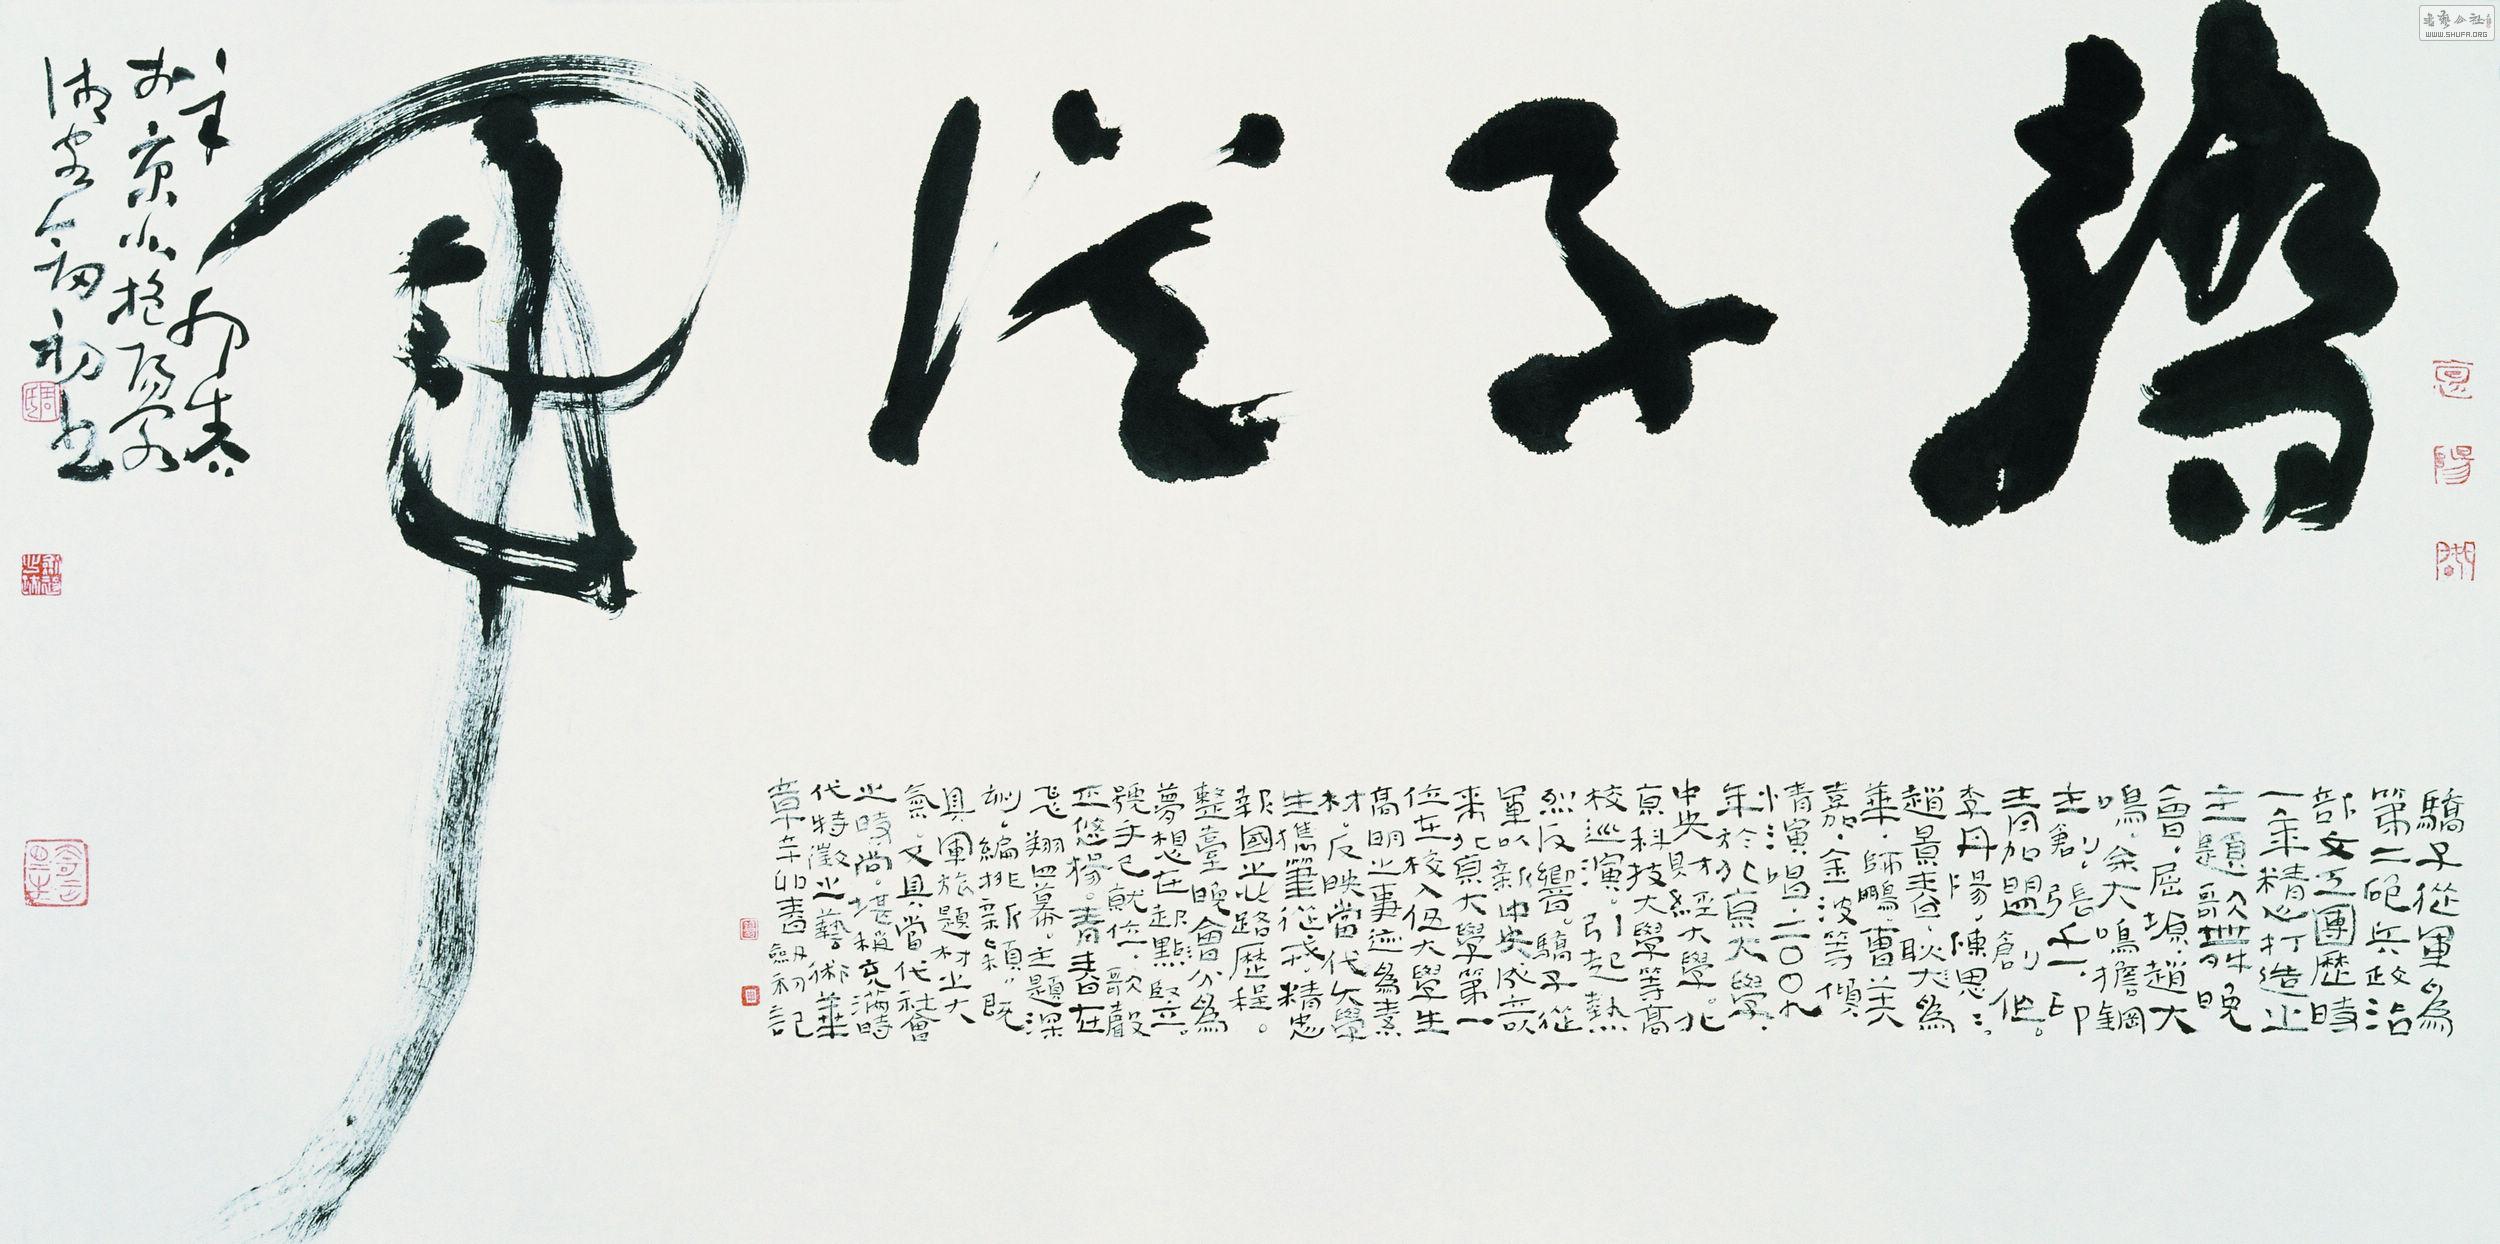 驕子從軍
驕子從軍為
第二砲兵政治
部文工團歷時
一年精心打造之
主題歌舞晚
會。屈塬、趙大
鳴、余大鳴擔綱
主創。張千一、印
青加盟創作。
李丹陽、陳思思、
趙景春、耿大為
華、師鵬、曹芙
嘉、金波等傾
情演唱。二〇〇九
年於北京大學、
中央財經大學、北
京科技大學等高
校巡演。引起熱
烈反響。驕子從
軍以新中央成立以
來北京大學第一
位在校入伍大學生
高明之事迹為素
材。反映當代大學
生攜筆從戎、精忠
報國之心路歷程。
整臺晚會分為
夢想在起點堅立。
號手已就位、歌聲
正悠揚。青春在
飛翔四幕。主題深
刻。編排新穎。既
具軍旅題材之大
氣。又具當代社會
之時尚。堪稱充滿時
代特徵之藝術華
章辛卯春劍初記
辛卯春
於京北
書
WWW.SHUFA.ORG